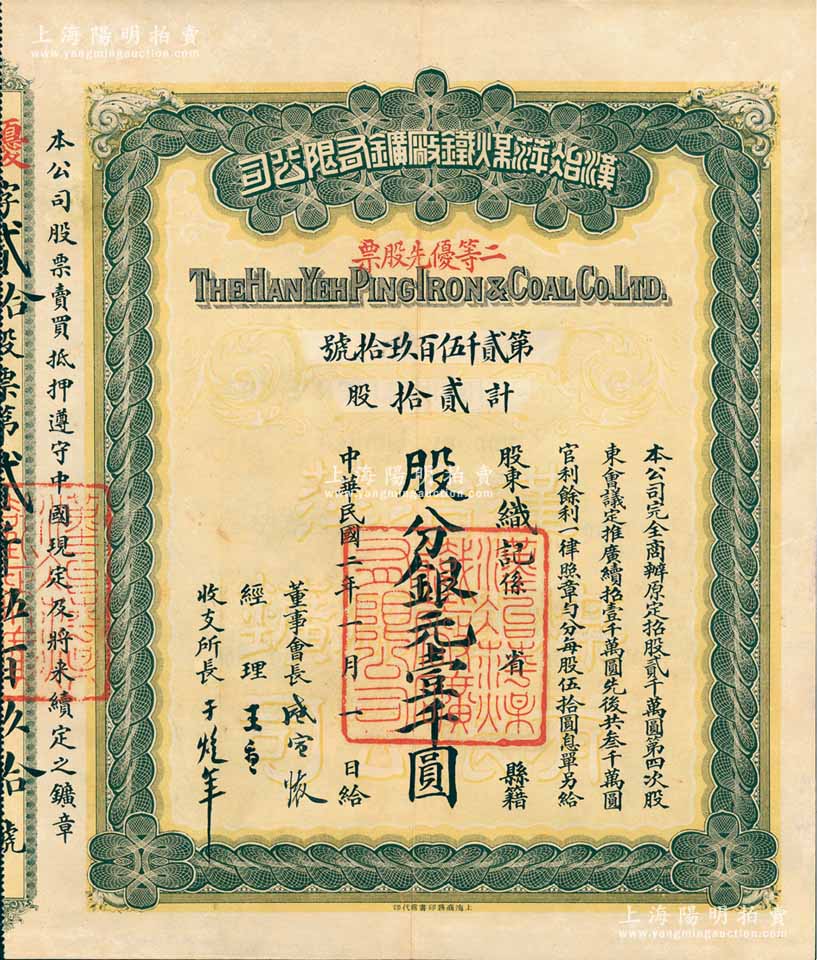 上海陽明拍賣
www.yangmingauction.com
漢冶萍煤鐵廠鑛有限公司
二等優先股票
THE HAN YEH PING IRON & COAL CO. LTD.
第貳千伍百玖拾號
計貳拾股
本公司完全商辦原定招股貳千萬圓第四次股
東會議定推廣續招壹千萬圓先後共叁千萬圓
官利餘利一律照章勻分每股伍拾圓息單另給
股東織記係 省 縣籍
股分銀元壹千圓
中華民國二年一月一日給
董事會長 盛宣懷
經理 王
收支所長 于焌年
本公司股票賣買抵押遵守中國現定及將來續定之鑛章
優字貳拾股票第貳千伍百玖拾號
上海商務印書館代印
上海陽明拍賣
www.yangmingauction.com
上海陽明拍賣
www.yangmingauction.com